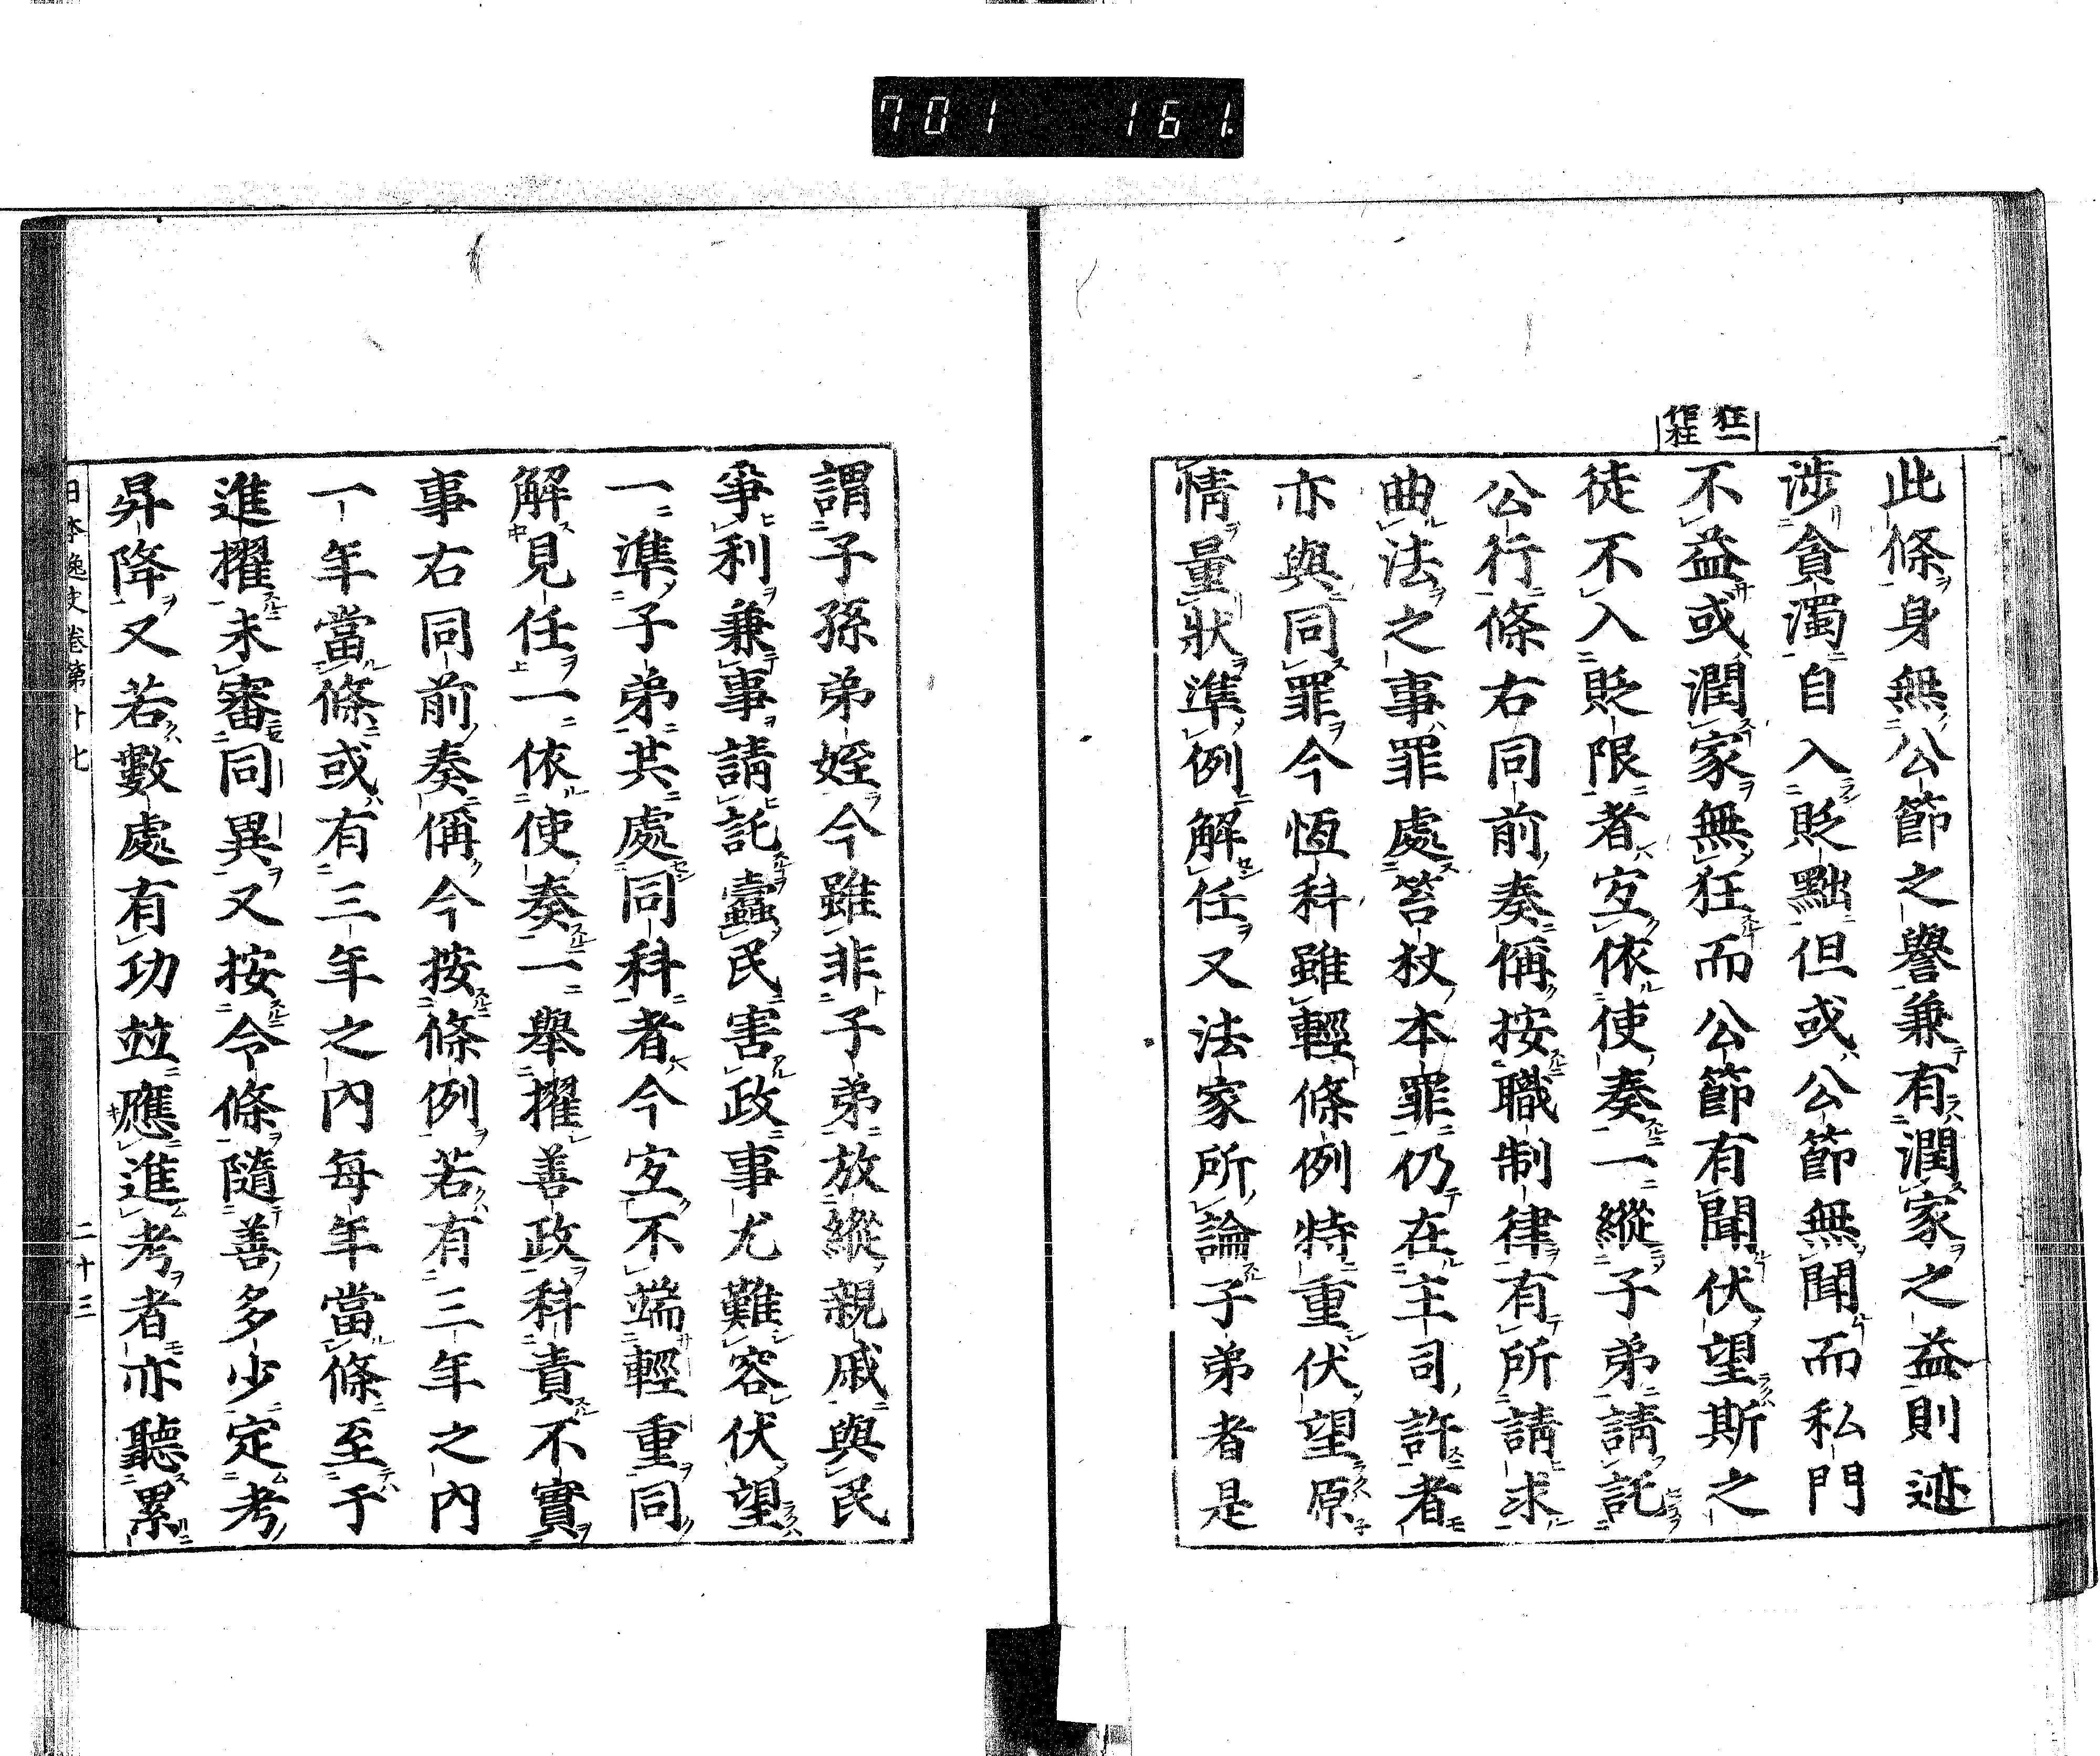 701 161.
狂一
作枉
此條身無公節之譽兼有潤家之益則迹
涉貪濁自入貶黜但或公節無聞而私門
不益或潤家無狂而公節有聞伏望斯之
徒不入貶限者宐依使奏一縱子弟請託
公行條右同前奏偁按職制律有所請求
曲法之事罪處笞杖本罪仍在主司許者
亦與同罪今恆科雖輕條例特重伏望原
情量狀準例解任又法家所論子弟者是
謂子孫弟姪今雖非子弟放縱親戚與民
爭利兼事請託蠹民害政事尤難容伏望
一準子弟共處同科者今宐不端輕重同
解見任一依使奏一舉擢善政科責不實
事右同前奏偁今按條例若有三年之內
一年當條或有三年之內每年當條至于
進擢未審同異又按令條隨善多少定考
昇降又若數處有功並應進考者亦聽累
日本逸史卷第廿七 二十三